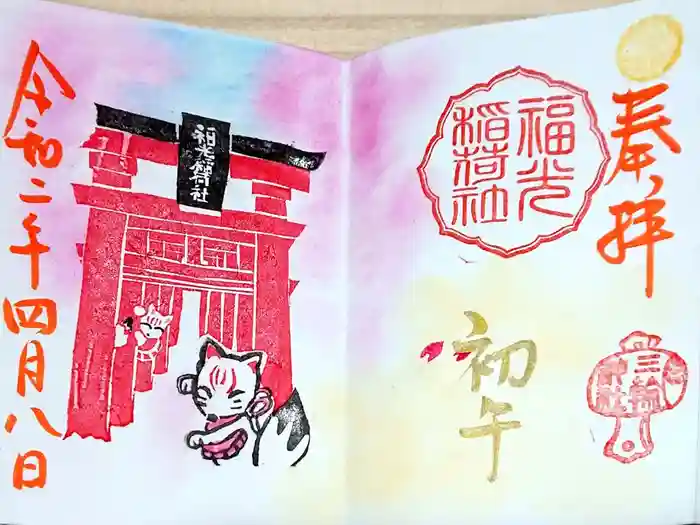 奉拝
福光
稲荷社
三輪
初午
福光稲荷社
令和二年四月八日